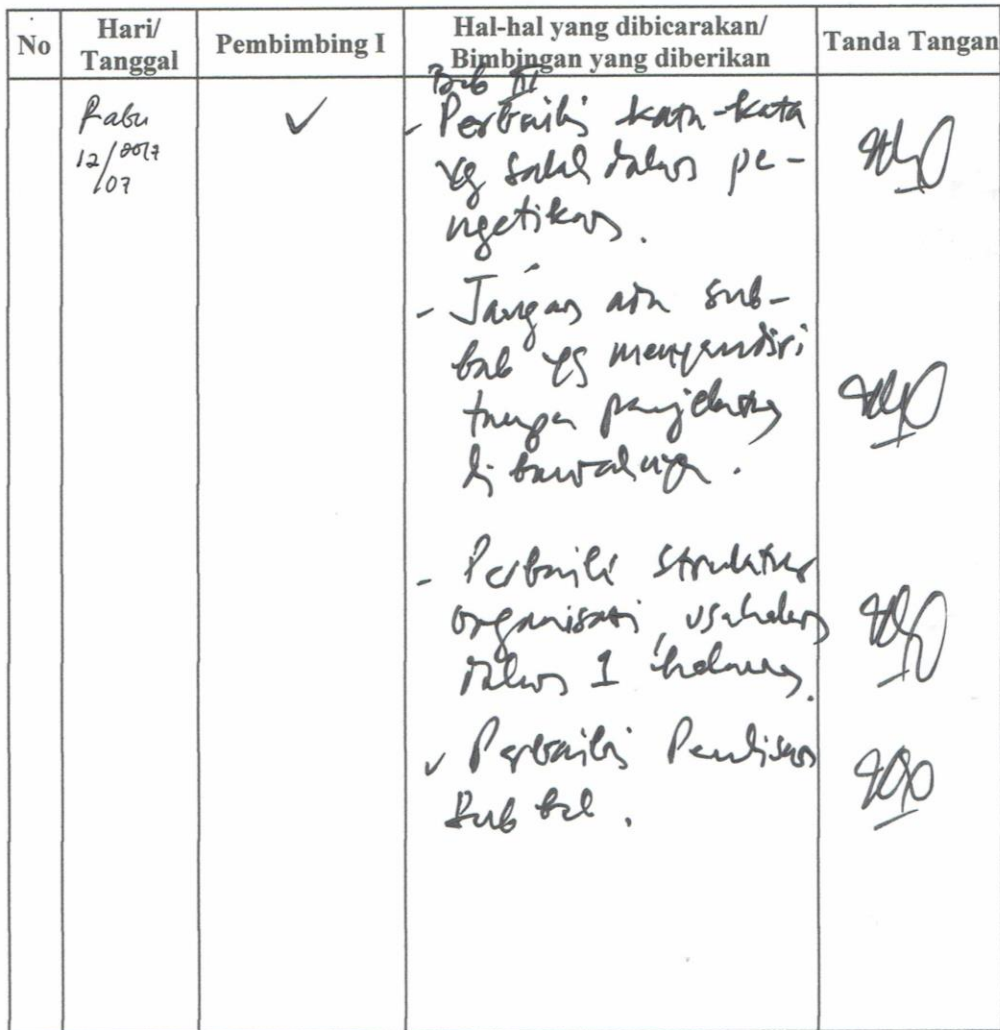 No
Hari/
Tanggal
Pembimbing I
Hal-hal yang dibicarakan/
Bimbingan yang diberikan
Tanda Tangan
Rabu
12/2017
/07
✓
Bab III
- Perbaiki kata-kata
yg salah dalam pe-
ngetikan.
- Jangan ada sub-
bab yg menyendiri
tanpa penjelasan
di bawahnya.
- Perbaiki struktur
organisasi, usahakan
dalam 1 halaman.
✓ Perbaiki Penulisan
Sub bab.